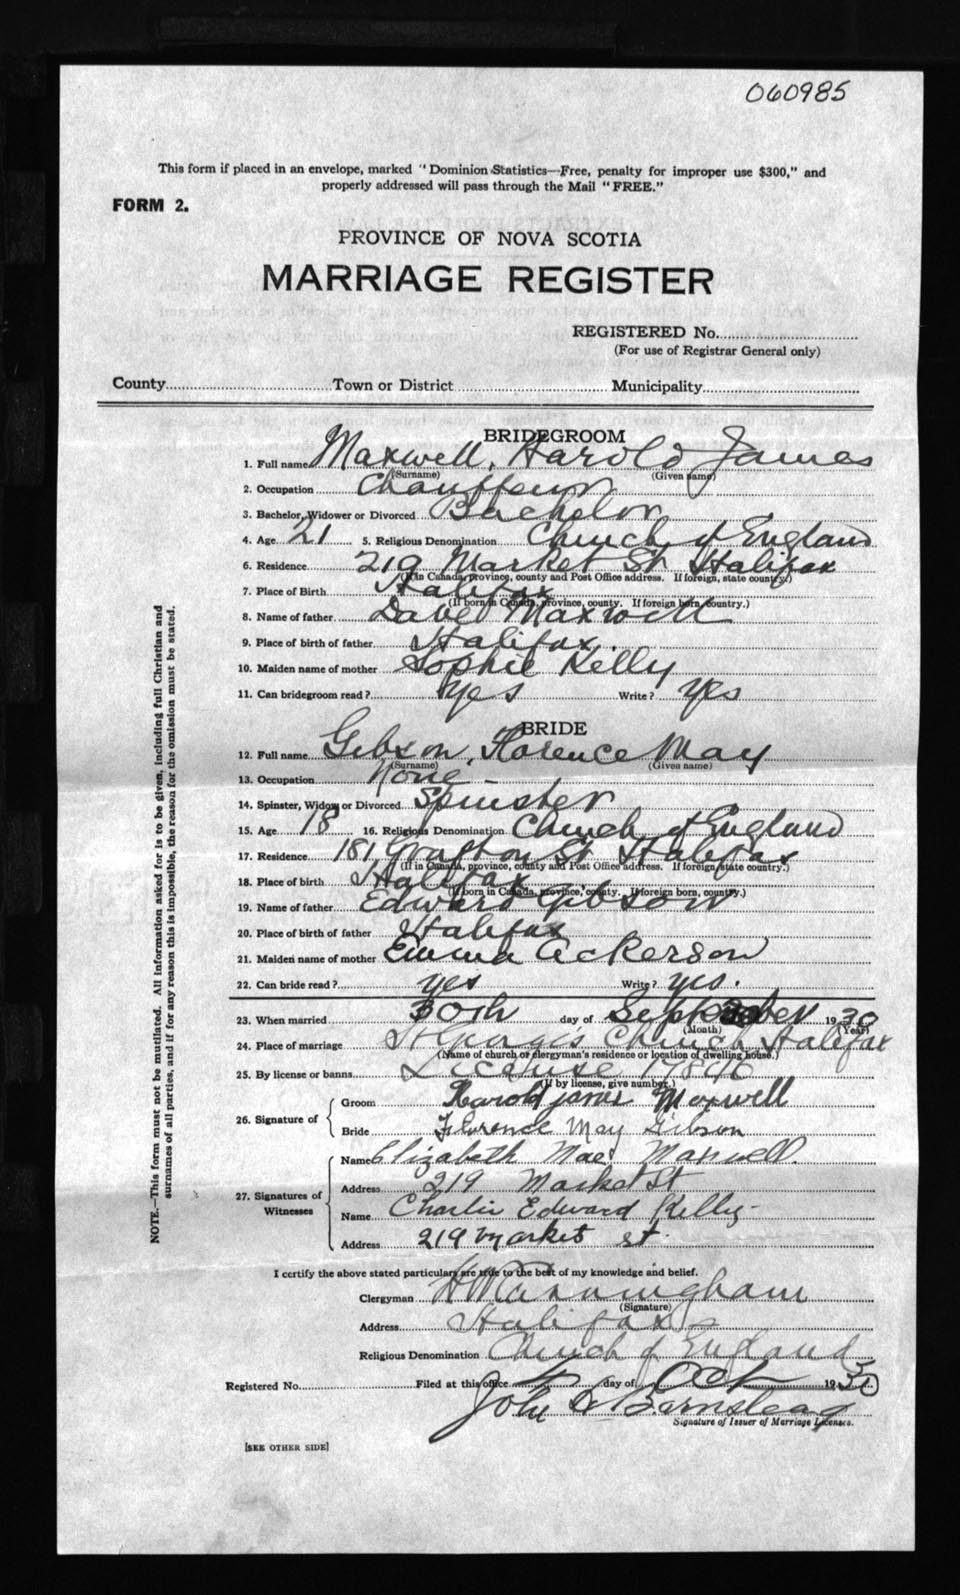 060985
This form if placed in an envelope, marked "Dominion Statistics—Free, penalty for improper use $300," and
properly addressed will pass through the Mail "FREE."
FORM 2.
PROVINCE OF NOVA SCOTIA
MARRIAGE REGISTER
REGISTERED No.
(For use of Registrar General only)
County Town or District Municipality
BRIDEGROOM
1. Full name Maxwell, Harold James
(Surname) (Given name)
2. Occupation Chauffeur
3. Bachelor, Widower or Divorced Bachelor
4. Age 21 5. Religious Denomination Church of England
6. Residence 219 Market St Halifax
(If in Canada, province, county and Post Office address. If foreign, state country.)
7. Place of Birth Halifax
(If born in Canada, province, county. If foreign born, country.)
8. Name of father Dave Maxwell
9. Place of birth of father Halifax.
10. Maiden name of mother Sophie Kelly
11. Can bridegroom read? Yes Write? Yes
BRIDE
12. Full name Gibson, Florence May
(Surname) (Given name)
13. Occupation None
14. Spinster, Widow or Divorced Spinster
15. Age 18 16. Religious Denomination Church of England
17. Residence 181, Grafton St Halifax
(If in Canada, province, county and Post Office address. If foreign, state country.)
18. Place of birth Halifax
(If born in Canada, province, county. If foreign born, country.)
19. Name of father Edward Gibson
20. Place of birth of father Halifax
21. Maiden name of mother Emma Ackerson
22. Can bride read? yes Write? yes.
23. When married 30th day of September 1930
(Month) (Year)
24. Place of marriage St George's Church, Halifax
(Name of church or clergyman's residence or location of dwelling house.)
25. By license or banns. License
(If by license, give number.)
26. Signature of
Groom Harold James Maxwell
Bride Florence May Gibson
27. Signatures of Witnesses
Name Elizabeth Mae Maxwell.
Address 219 Market St
Name Charlie Edward Kelly
Address 219 Market st.
I certify the above stated particulars are true to the best of my knowledge and belief.
Clergyman H W Cunningham
(Signature)
Address Halifax
Religious Denomination Church of England
Registered No. Filed at this office day of Oct 1930
John
Signature of Issuer of Marriage Licenses.
[SEE OTHER SIDE]
NOTE.—This form must not be mutilated. All information asked for is to be given, including full Christian and
surnames of all parties, and if for any reason this is impossible, the reason for the omission must be stated.